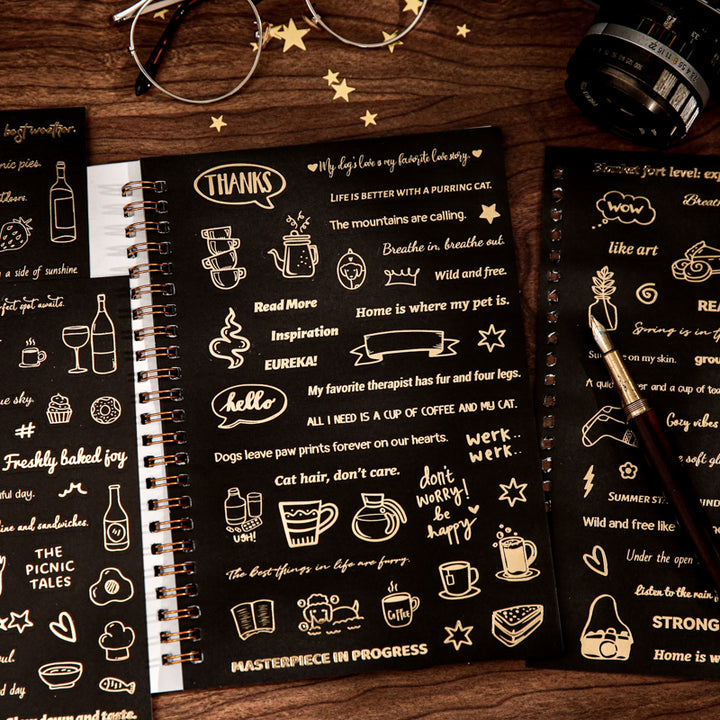 best weather.
pies.
a side of sunshine
awaits.
sky.
#
Freshly baked joy
day.
and sandwiches.
THE
PICNIC
TALES
day.
and taste.
THANKS
My dog's love is my favorite love story.
LIFE IS BETTER WITH A PURRING CAT.
The mountains are calling.
Breathe in, breathe out.
Wild and free.
Read More
Home is where my pet is.
Inspiration
EUREKA!
My favorite therapist has fur and four legs.
hello
ALL I NEED IS A CUP OF COFFEE AND MY CAT.
Dogs leave paw prints forever on our hearts.
werk..
werk..
Cat hair, don't care.
don't
WORRY!
be
happy
UGH!
The best things in life are furry.
COFFEE
MASTERPIECE IN PROGRESS
fort level:
WOW
like art
Spring is in
on my skin.
and a cup of
Cozy vibes
soft
SUMMER
Wild and free like
Under the open
Listen to the rain
STRONG
Home is